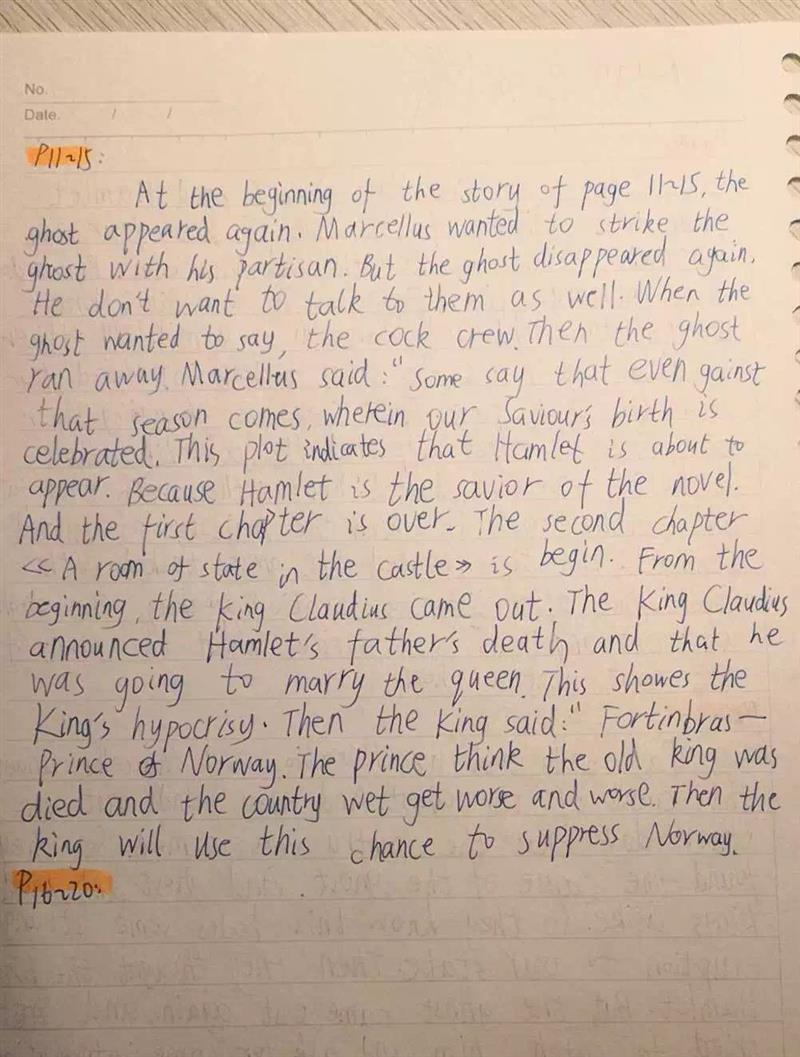 No.
Date. / /
P11~15:
At the beginning of the story of page 11~15, the
ghost appeared again. Marcellus wanted to strike the
ghost with his partisan. But the ghost disappeared again.
He don't want to talk to them as well. When the
ghost wanted to say, the cock crew. Then the ghost
ran away. Marcellus said:" Some say that even gainst
that season comes, wherein our Saviour's birth is
celebrated. This plot indicates that Hamlet is about to
appear. Because Hamlet is the savior of the novel.
And the first chapter is over. The second chapter
<< A room of state in the castle>> is begin. From the
beginning, the king Claudius came out. The King Claudius
announced Hamlet's father's death and that he
was going to marry the queen. This showes the
King's hypocrisy. Then the King said:" Fortinbras—
Prince of Norway. The prince think the old king was
died and the country wet get worse and worse. Then the
king will use this chance to suppress Norway.
P16~20: